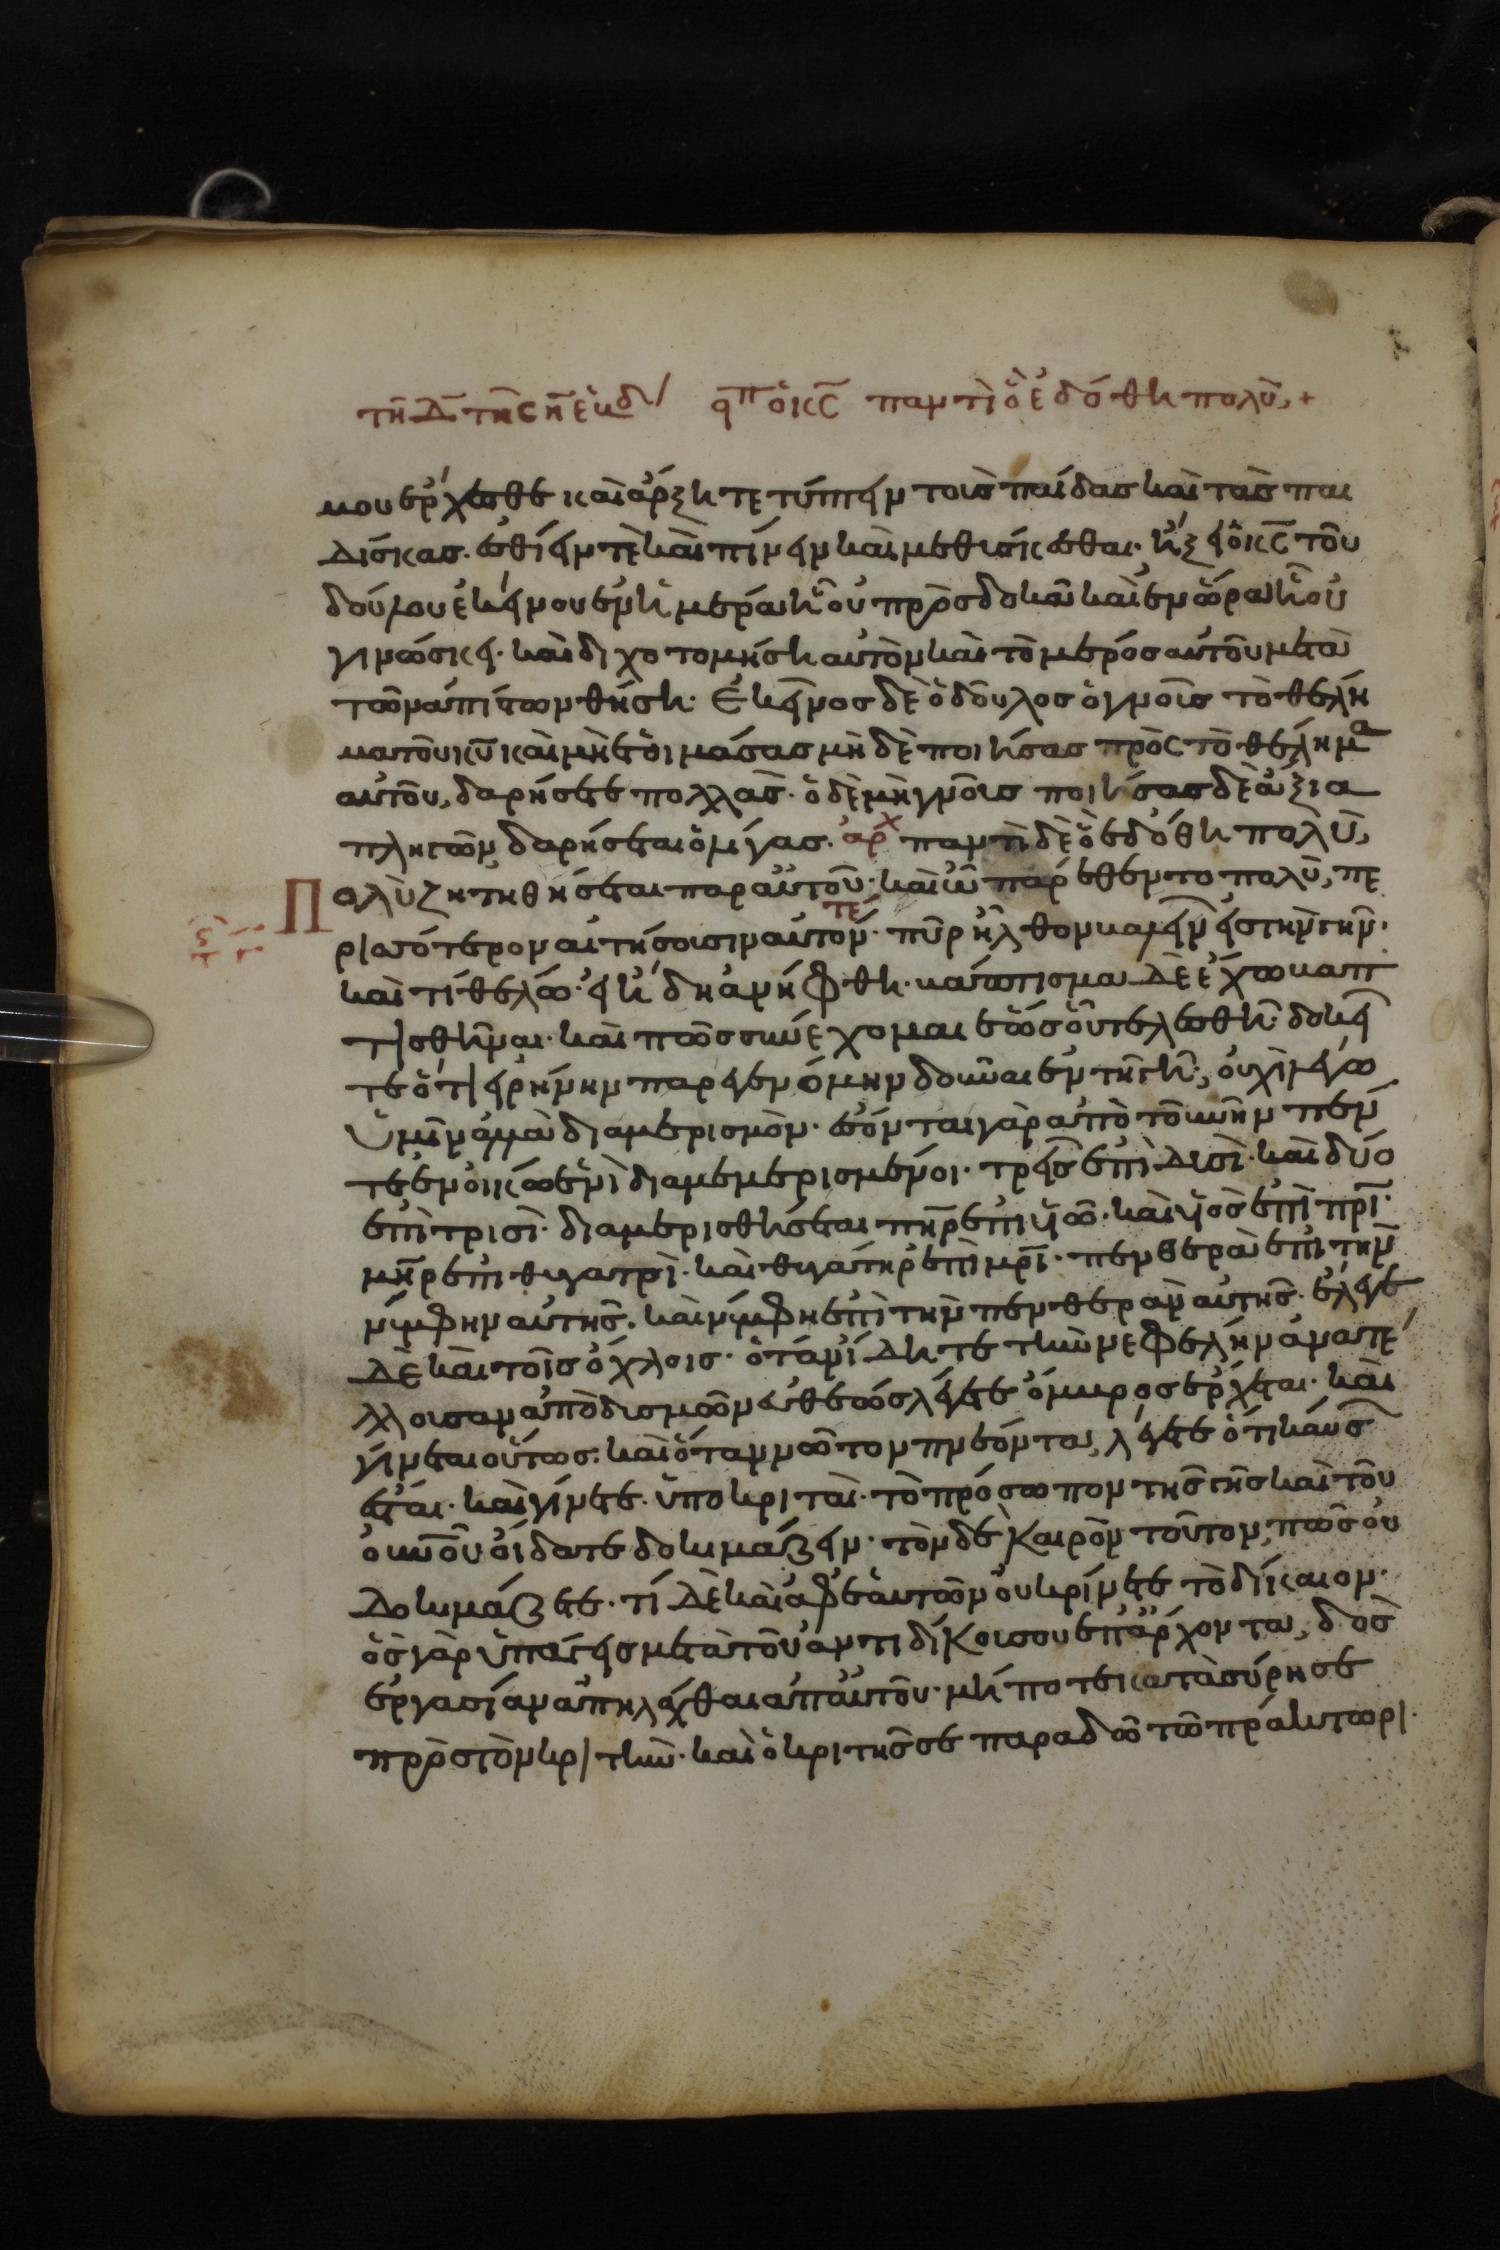 τῆ Δ τῆς η ἑβδ/ εἶπεν ὁ κς παντὶ ὧ ἐδόθη πολὺ, +
μου ἔρχεσθαι καὶ ἄρξητε τύπτειν τοὺς παῖδας καὶ τὰς παι
δίσκας. ἐσθίειν τὲ καὶ πίνειν καὶ μεθύσκεσθαι· ἥξει ὁ κς τοῦ
δούλου ἐκείνου ἐν ἡμέρα ἧ οὐ προσδοκᾶ καὶ ἐν ὥρα ἧ οὐ
γινώσκει· καὶ διχοτομήση αὐτὸν καὶ τὸ μέρος αὐτοῦ μετὰ
τῶν ἀπίστων θήση· Ἐκεῖνος δὲ ὁ δοῦλος ὁ γνοὺς τὸ θέλη
μα τοῦ κυ καὶ μὴ ἑτοιμάσας μὴ δὲ ποιήσας πρὸς τὸ θέλημα
αὐτοῦ, δαρήσεται πολλὰς· ὁ δὲ μὴ γνοὺς ποιήσας δὲ ἄξια
πληγῶν, δαρήσεται ὀλίγας. ἀρχ παντὶ δὲ ὧ ἐδόθη πολὺ,
Πολὺ ζητηθήσεται παρ αὐτοῦ· καὶ ὧ παρέθεντο πολὺ, πε
ρισσότερον αἰτήσουσιν αὐτόν· τε πῦρ ἦλθον βαλεῖν εἰς τὴν γῆν·
καὶ τί θέλω· εἰ ἤδη ἀνήφθη· βάπτισμα δὲ ἔχω βαπ
τισθῆναι· καὶ πῶς συνέχομαι ἕως οὗ τελεσθῆ· δοκεῖ
τε ὅτι εἰρήνην παρεγενόμην δοῦναι ἐν τῆ γῆ, οὐχὶ λέγω
ὑμῖν ἀλλὰ διαμερισμὸν· ἔσονται γὰρ ἀπὸ τοῦ νῦν πέν
τε ἐν οἴκω ἑνὶ διαμεμερισμένοι· τρεῖς ἐπὶ δυσὶ· καὶ δύο
ἐπὶ τρισὶ· διαμερισθήσεται πηρ ἐπι υἱῶ· καὶ υἱὸς ἐπὶ πρι·
μηρ ἐπι θυγατρὶ· καὶ θυγάτηρ ἐπὶ μρι· πενθερὰ ἐπὶ τὴν
νύμφην αὐτῆς· καὶ νύμφη ἐπὶ τὴν πενθερὰν αὐτῆς· ἔλεγε
δὲ καὶ τοῖς ὄχλοις· ὅταν ἴδητε τὴν νεφέλην ἀνατέ
λλουσαν ἀπὸ δυσμῶν εὐθέως λέγετε ὄμβρος ἔρχεται· καὶ
γίνεται οὕτως: καὶ ὅταν νῶτον πνέοντα, λέγετε ὅτι καύσ
εται· καὶ γίνεται· ὑποκριταὶ· τὸ πρόσωπον τῆς γῆς καὶ τοῦ
οὐνοῦ οἴδατε δοκιμάζειν· τὸν δὲ καιρὸν τοῦτον, πῶς οὐ
δοκιμάζετε· τί δὲ καὶ ἀφ ἑαυτῶν οὐ κρίνετε τὸ δίκαιον·
ὡς γὰρ ὑπάγεις μετὰ τοῦ ἀντιδίκου σου ἐπ ἄρχοντα, δὸς
ἐργασίαν ἀπηλάχθαι ἀπ αὐτοῦ· μή ποτε κατασύρη σε
πρὸς τὸν κριτὴν· καὶ ὁ κριτῆς σε παραδῶ τῶ πράκτωρι·